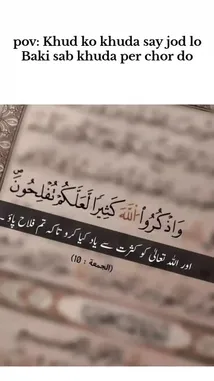 pov: Khud ko khuda say jod lo
Baki sab khuda per chor do
وَاذْكُرُوا اللَّهَ كَثِيرًا لَعَلَّكُمْ تُفْلِحُونَ
اور اللہ تعالٰی کو کثرت سے یاد کیا کرو تاکہ تم فلاح پاؤ ـ
(الجمعة : 10)